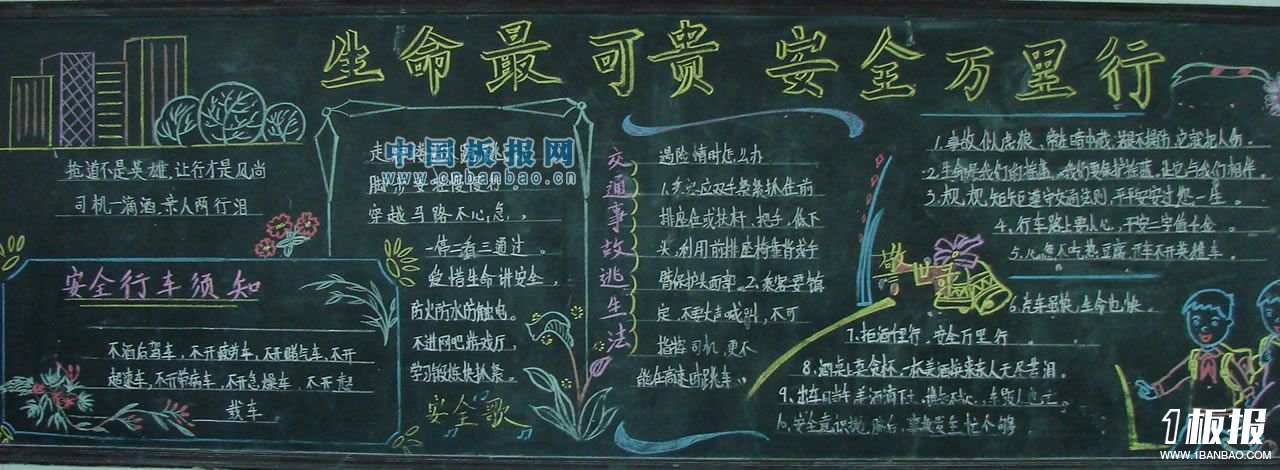 生命最可贵 安全万里行
抢道不是英雄,让行才是风尚
司机一滴酒,亲人两行泪
安全行车须知
不酒后驾车,不开疲劳车,不开赌气车,不开
超速车,不开带病车,不开急燥车,不开超
载车
中国板报网
www.cnbanbao.cn
穿越马路不心急,
一停二看三通过。
爱惜生命讲安全,
防火防水防触电。
不进网吧游戏厅,
学习锻炼快抓紧。
安全歌
交通事故逃生法
遇险情时怎么办
1.应双手紧紧抓住前
排座位或扶杆、把手,低下
头,利用前排座椅靠背或手
臂保护头面部。2.乘客要镇
定,不要大声喊叫,不可
指挥司机,更不
能在高速时跳车。
警世
1.事故似虎狼,常在暗中藏,若是不提防,它就把人伤。
2.生命是我们的摇篮,我们要保护摇篮,让它与我们相伴。
3.规规矩矩遵守交通法则,平平安安过您一生。
4.行车路上要小心,平安二字值千金。
5.心急不吃热豆腐,开车不开英雄车。
6.汽车虽快,生命也快。
7.拒酒千里行,安全万里行。
8.酒桌上莫贪杯,一杯美酒换来亲人无尽苦泪。
9.出车
10.安全意识
1板报
WWW.1BANBAO.COM